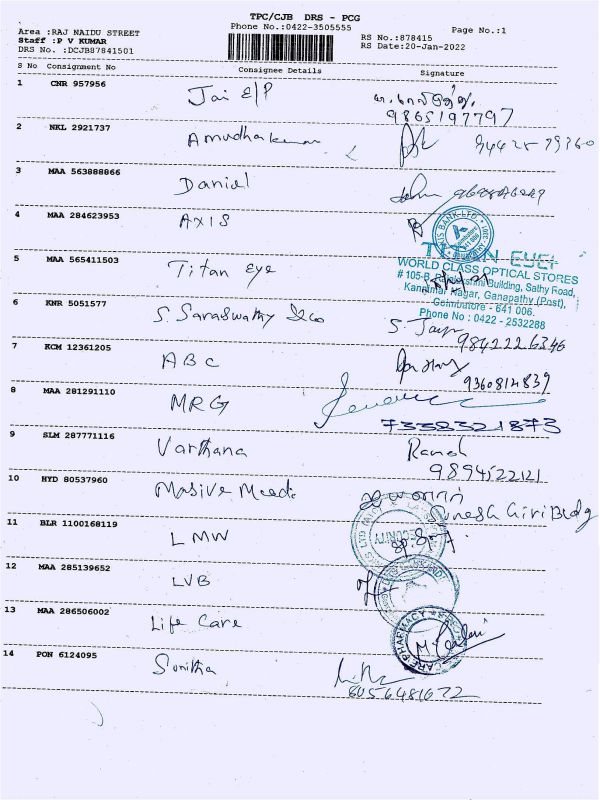 TPC/CJB DRS - PCG
Area :RAJ NAIDU STREET
Phone No.:0422-3505555
Page No.:1
Staff :P V KUMAR
RS No.:878415
DRS No. :DCJB87841501
RS Date:20-Jan-2022
S No Consignment No Consignee Details Signature
1 CNR 957956 Jai E/P
9865197797
2 NKL 2921737 Amudhakumar
3 MAA 563888866 Daniel
4 MAA 284623953 AXIS
5 MAA 565411503 Titan eye
TITAN EYE+
WORLD CLASS OPTICAL STORES
Building, Sathy Road,
Nagar, Ganapathy (Post),
Coimbatore - 641 006.
Phone No : 0422 - 2532288
6 KNR 5051577 S. Saraswathy & co
9842226346
7 KCM 12361205 ABC
9360814839
8 MAA 281291110 MRG
7338321873
9 SLM 287771116 Varthana Ramesh
9894522121
10 HYD 80537960 Masive
Giri Bldg
11 BLR 1100168119 LMW
12 MAA 285139652 LVB
13 MAA 286506002 Life Care
14 PON 6124095 Sunitha
8056481672